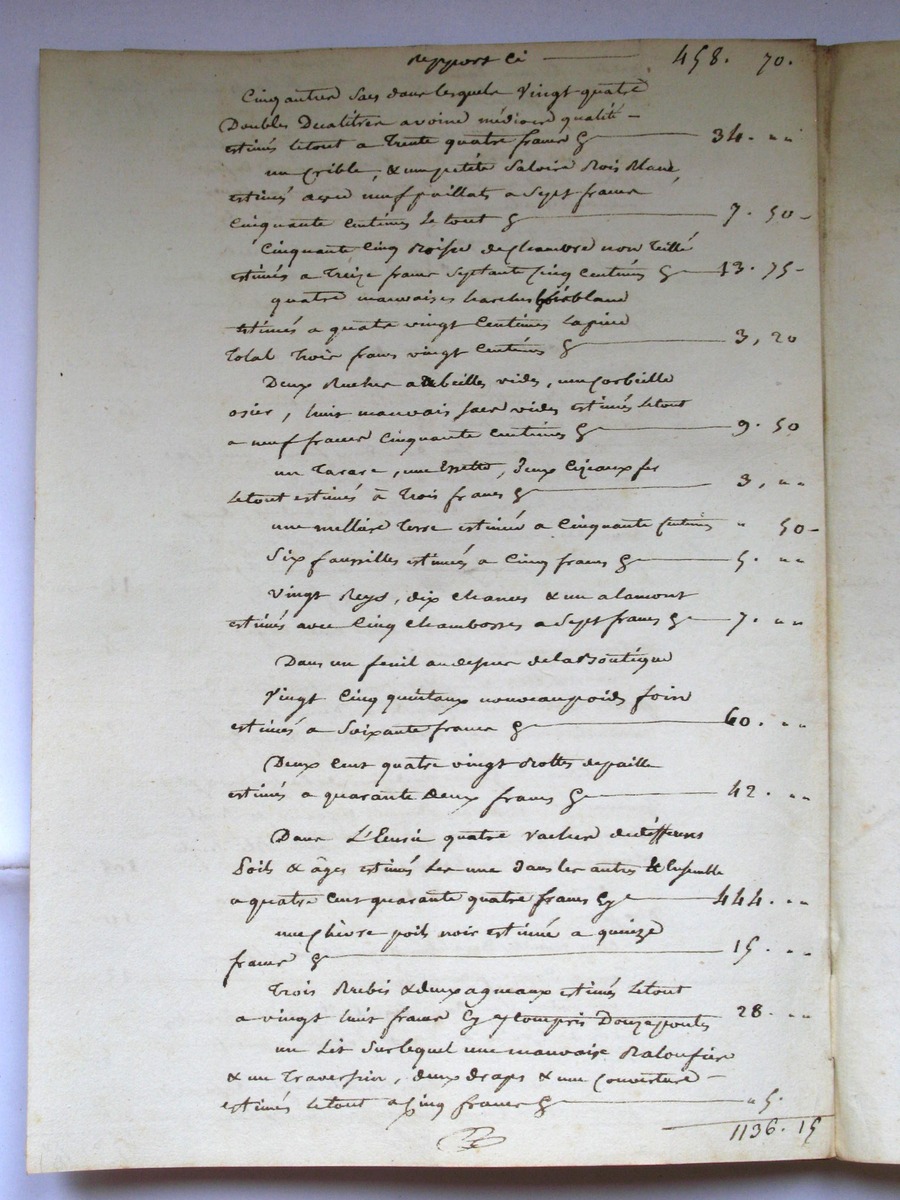 Repport Ci 458. 70.
Cinq autres sacs dans lesquels vingt quatre
Doubles Decalitres avoine médiocre qualité
estimés letout a Trente quatre francs Cy 34. " "
un Crible, & une petite Saloire Bois Blanc,
estimés avec neuf paillats a Sept francs
Cinquante Centimes Le tout Cy 7. 50
Cinquante Cinq de Chambre non Teillé
estimés a Treize francs Septante Cinq Centimes Cy 13. 75
quatre mauvaises bois blanc
estimés a quatre vingt Centimes Lapiece
Total Trois francs vingt Centimes Cy 3, 20
Deux Ruches a abeilles vides, une Corbeille
osier, huit mauvais sacs vides estimés Letout
a neuf francs Cinquante Centimes Cy 9. 50
un Tarare, une , Deux Cizeaux fer
Letout estimés à Trois francs Cy 3, " "
une Terre estimée a Cinquante Centimes " 50
Six faussilles estimés a Cinq francs Cy 5. " "
Vingt , dix & un
estimés avec Cinq a Sept francs Cy 7. " "
Dans un fenil audessus dela Boutique
Vingt Cinq quintaux nouveau poids foin
estimés a Soixante francs Cy 60. " "
Deux Cent quatre vingt Bottes depaille
estimés a quarante Deux francs Cy 42. " "
Dans L'Eurie quatre vaches de différents
Poils & âges estimés Les une dans les autres & Ensemble
a quatre Cent quarante quatre francs Cy 444. " "
une Chèvre poils noir estimée a quinze
francs Cy 15. " "
Trois Brebis & deux agneaux estimés Letout
a vingt huit francs Cy y Compris Douze poules 28. " "
un Lit Surlequel une mauvaise Baloufière
& un Traversin, deux draps & une Couverture
estimés Letout a Cinq francs Cy " 5.
1136. 15